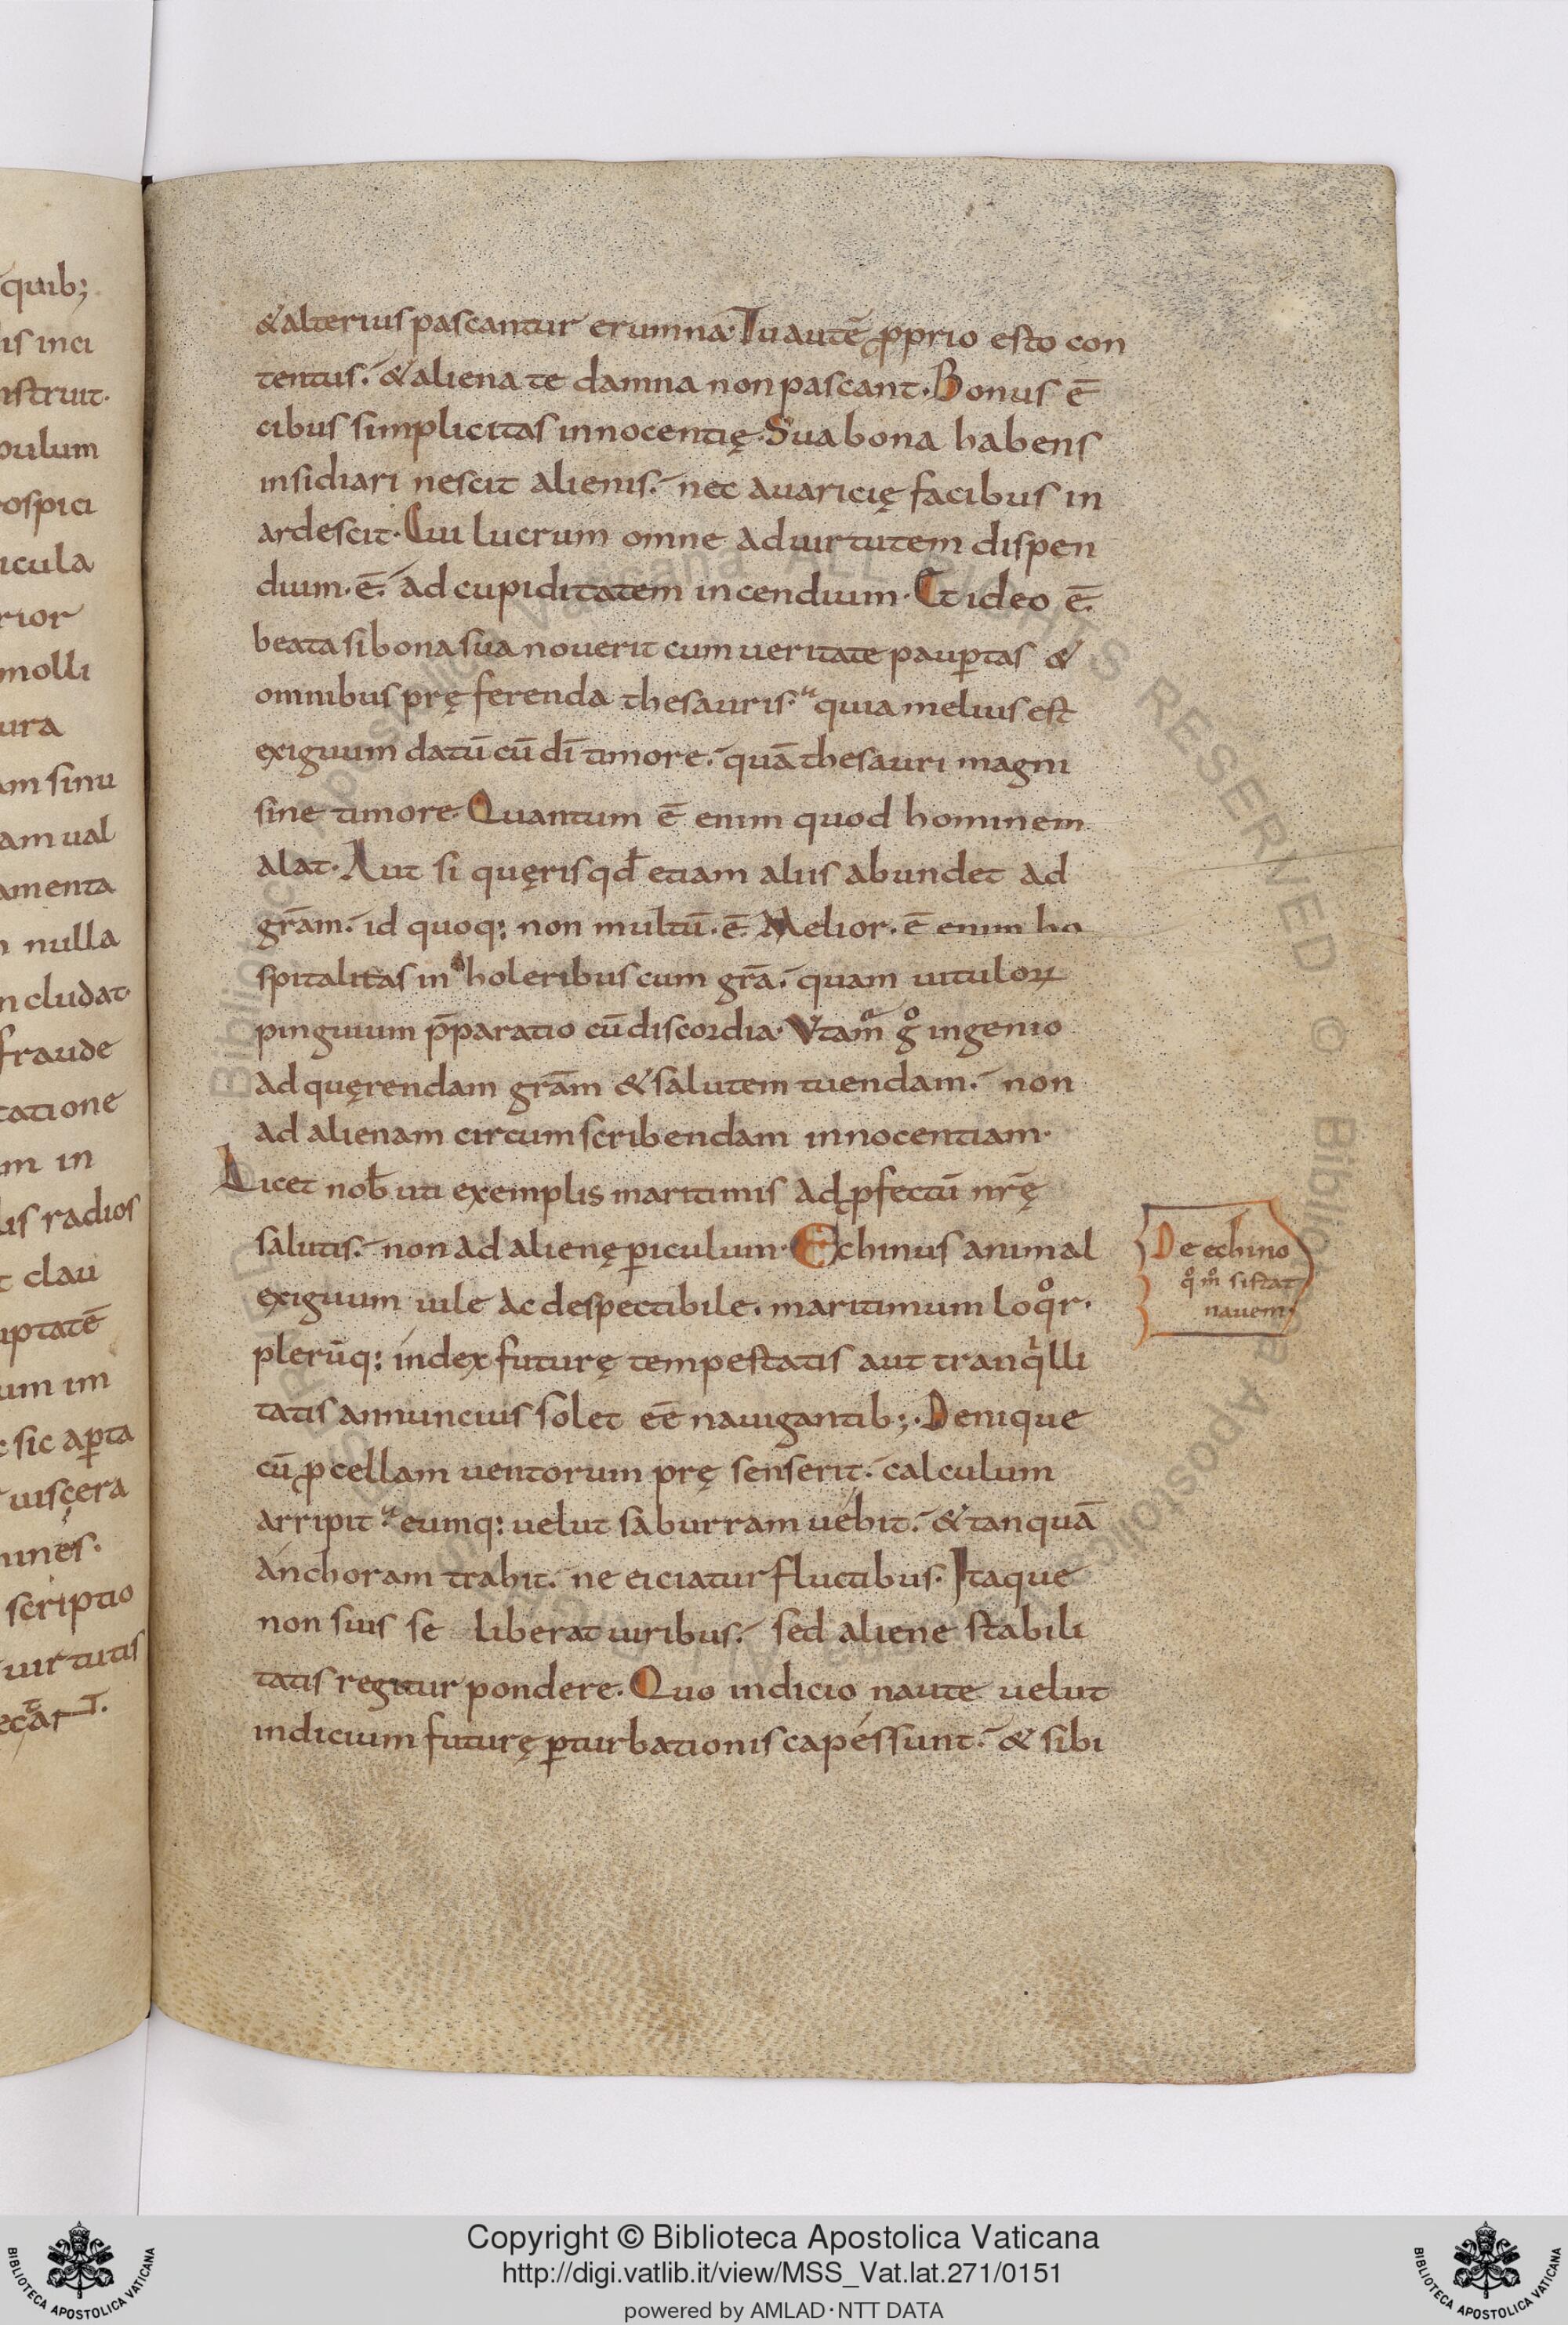 quib;
is inci
nstruit.
pulum
ospici
icula
rior
molli
ura
am sinu
am ual
amenta
nulla
n cludat
fraude
tatione
m in
lis radios
clau
uptatē
um im
sic aꝑta
uiscera
scriptio
uirtutis
& alterius pascantur erumna. Tu autē ꝓprio esto con
tentus. & aliena te damna non pascant. Bonus ē
cibus simplicitas innocentię. Sua bona habens
insidiari nescit alienis. nec auaricię facibus in
ardescit. Cui lucrum omne ad uirtutem dispen
dium. ē. ad cupiditatem incendium. Et ideo ē.
beata si bona sua nouerit cum ueritate pauꝑtas &
omnibus pręferenda thesauris. quia melius est
exiguum datū cū dī timore. quā thesauri magni
sine timore. Quantum ē enim quod hominem
alat. Aut si quęris qđ etiam aliis abundet ad
grām. id quoq; non multū. ē. Melior. ē enim ho
spitalitas in holeribus cum grā. quam uituloꝝ
pinguium p̄paratio cū discordia. Vtam̃ gͦ ingenio
ad quęrendam grām & salutem tuendam. non
ad alienam circumscribendam innocentiam.
Licet nob̄ uti exemplis maritimis ad ꝓfectū nr̄ę
salutis. non ad alienę ꝑiculum. Echinus animal
exiguum uile ac despectibile. maritimum loqͦr.
plerūq; index futurę tempestatis aut tranqͥlli
tatis annuncius solet eē nauigantib;. Denique
cū ꝓcellam uentorum prę senserit. calculum
arripit eumq; uelut saburram uehit. & tanquā
anchoram trahit. ne eiciatur fluctibus. Itaque
non suis se liberat uiribus. sed aliene stabili
tatis regitur pondere. Quo indicio naute uelut
indicium futurę ꝑturbationis capessunt. & sibi
De echino
qͦmͦ sistat
nauem
Copyright © Biblioteca Apostolica Vaticana
http://digi.vatlib.it/view/MSS_Vat.lat.271/0151
powered by AMLAD·NTT DATA
BIBLIOTECA APOSTOLICA VATICANA
BIBLIOTECA APOSTOLICA VATICANA